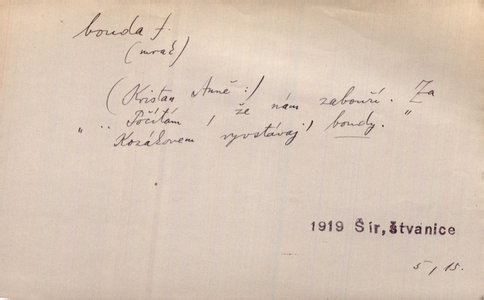 bouda f.
(mrak)
(Kristan Anně:)
„.. Počítám, že nám zabouří. Za
Kozákovem vyvstávaj' boudy."
1919 Šír, Štvanice
5, 15.